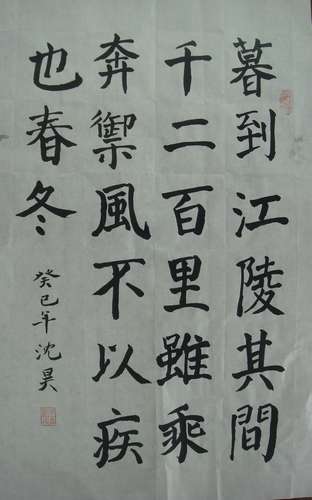 暮到江陵其間
千二百里雖乘
奔禦風不以疾
也春冬
癸巳年沈昊